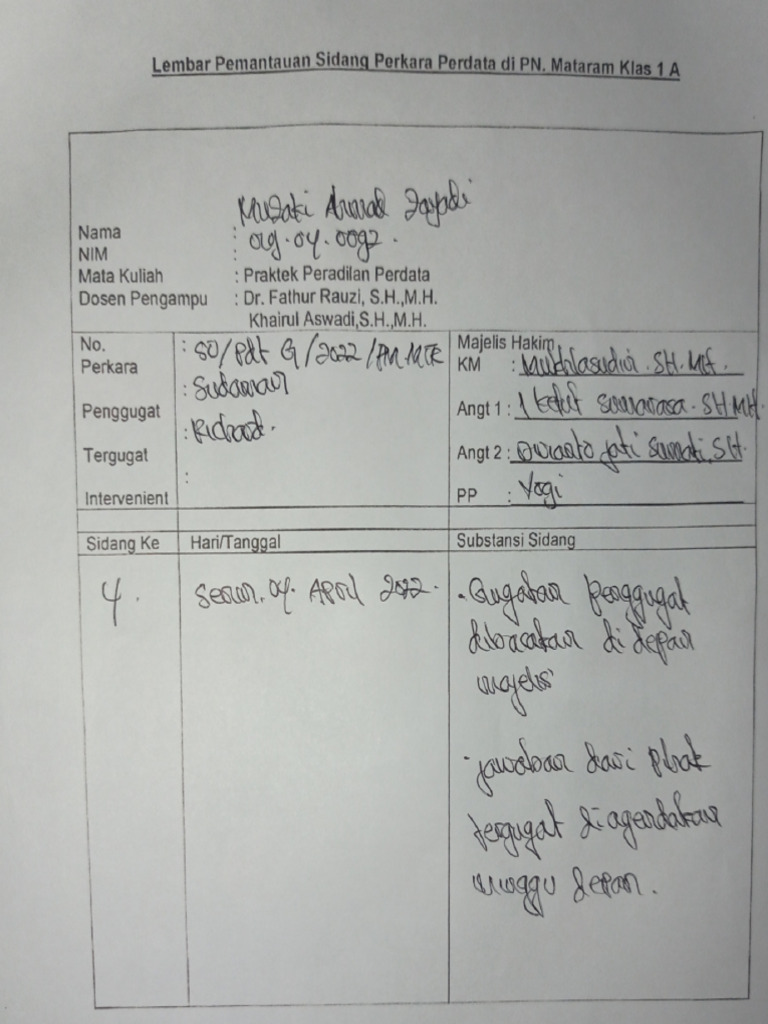 Lembar Pemantauan Sidang Perkara Perdata di PN. Mataram Klas 1 A
Nama : Muzaki Ahmad Zayadi
NIM : 019.04.0092.
Mata Kuliah : Praktek Peradilan Perdata
Dosen Pengampu : Dr. Fathur Rauzi, S.H.,M.H.
Khairul Aswadi,S.H.,M.H.
No. Perkara : 50/Pdt G/2022/PN MTR
Penggugat : Sudarman
Tergugat : Richard.
Intervenient :
Majelis Hakim
KM : Mukhlasudin. SH.MH.
Angt 1 : I ketut somanasa. SH MH.
Angt 2 : Dwianto jati Sumati, SH.
PP : Yogi
Sidang Ke Hari/Tanggal Substansi Sidang
4. Senin, 04. April 2022.
· Gugatan Penggugat
dibacakan di depan
majelis
· jawaban dari Pihak
tergugat di agendakan
minggu depan.